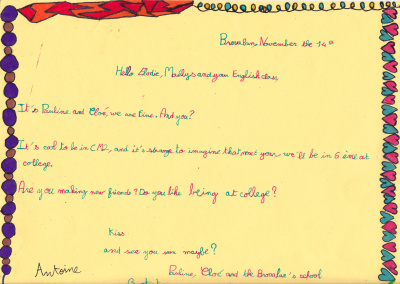 November the 14th
Hello Elodie, Maïllys and your English class
It's Pauline and Cloé, we are fine. And you?
It's cool to be in CM2, and it's strange to imagine that next year, we'll be in 6 ème at
college.
Are you making new friends? Do you like being at college?
Kiss
and see you soon maybe?
Antoine
Pauline, Cloé and the school